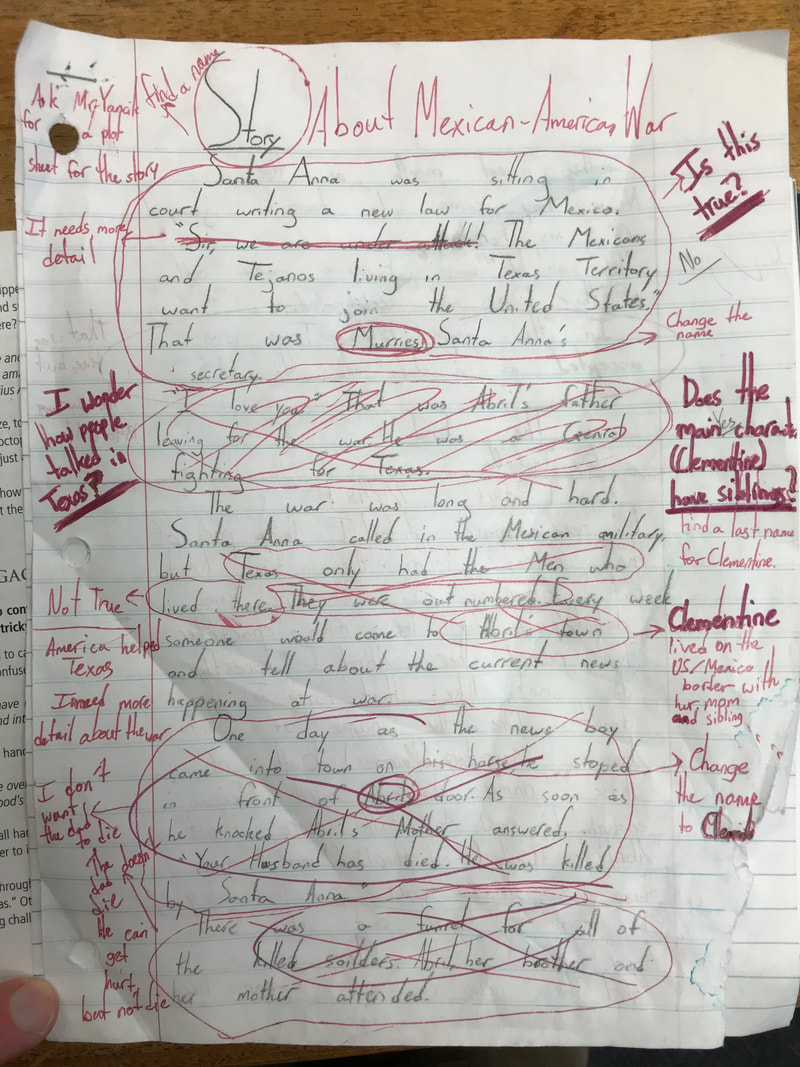 Ask Mr. Yancik
for a plot
sheet for the story
find a name
Story About Mexican-American War
Santa Anna was sitting in
court writing a new law for Mexico.
"Sir, we are under attack! The Mexicans
and Tejanos living in Texas Territory
want to join the United States."
That was Murries, Santa Anna's
secretary.
Is this
true?
No
It needs more
detail
Change the
name
"I love you." That was Abril's father
leaving for the war. He was a
fighting for Texas.
I wonder
how people
talked in
Texas?
Does the
main
(Clementine)
have siblings?
Yes
find a last name
for Clementine.
The war was long and hard.
Santa Anna called in the Mexican military,
but Texas only had the Men who
lived there. They were out numbered. Every week
someone would come to Abril's town
and tell about the current news
happening at war.
Not True
America helped
Texas
I need more
detail about the war
Clementine
lived on the
US/Mexico
border with
her mom
and sibling
One day as the news boy
came into town on his horse, he stoped
in front of Abril's door. As soon as
he knocked Abril's Mother answered,
"Your Husband has died. He was killed
by Santa Anna"
Change
the name
to
I don't
want
the dad
to die
The
dad doesn
die
He can
get
hurt,
but not die
There was a funrel for all of
the killed soilders. Abril, her brother and
her mother attended.